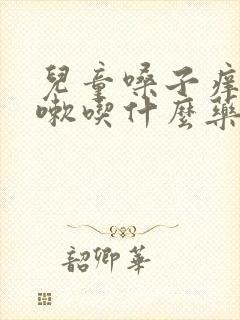 兒童嗓子痒
嗽喫什麼藥
韶卿華